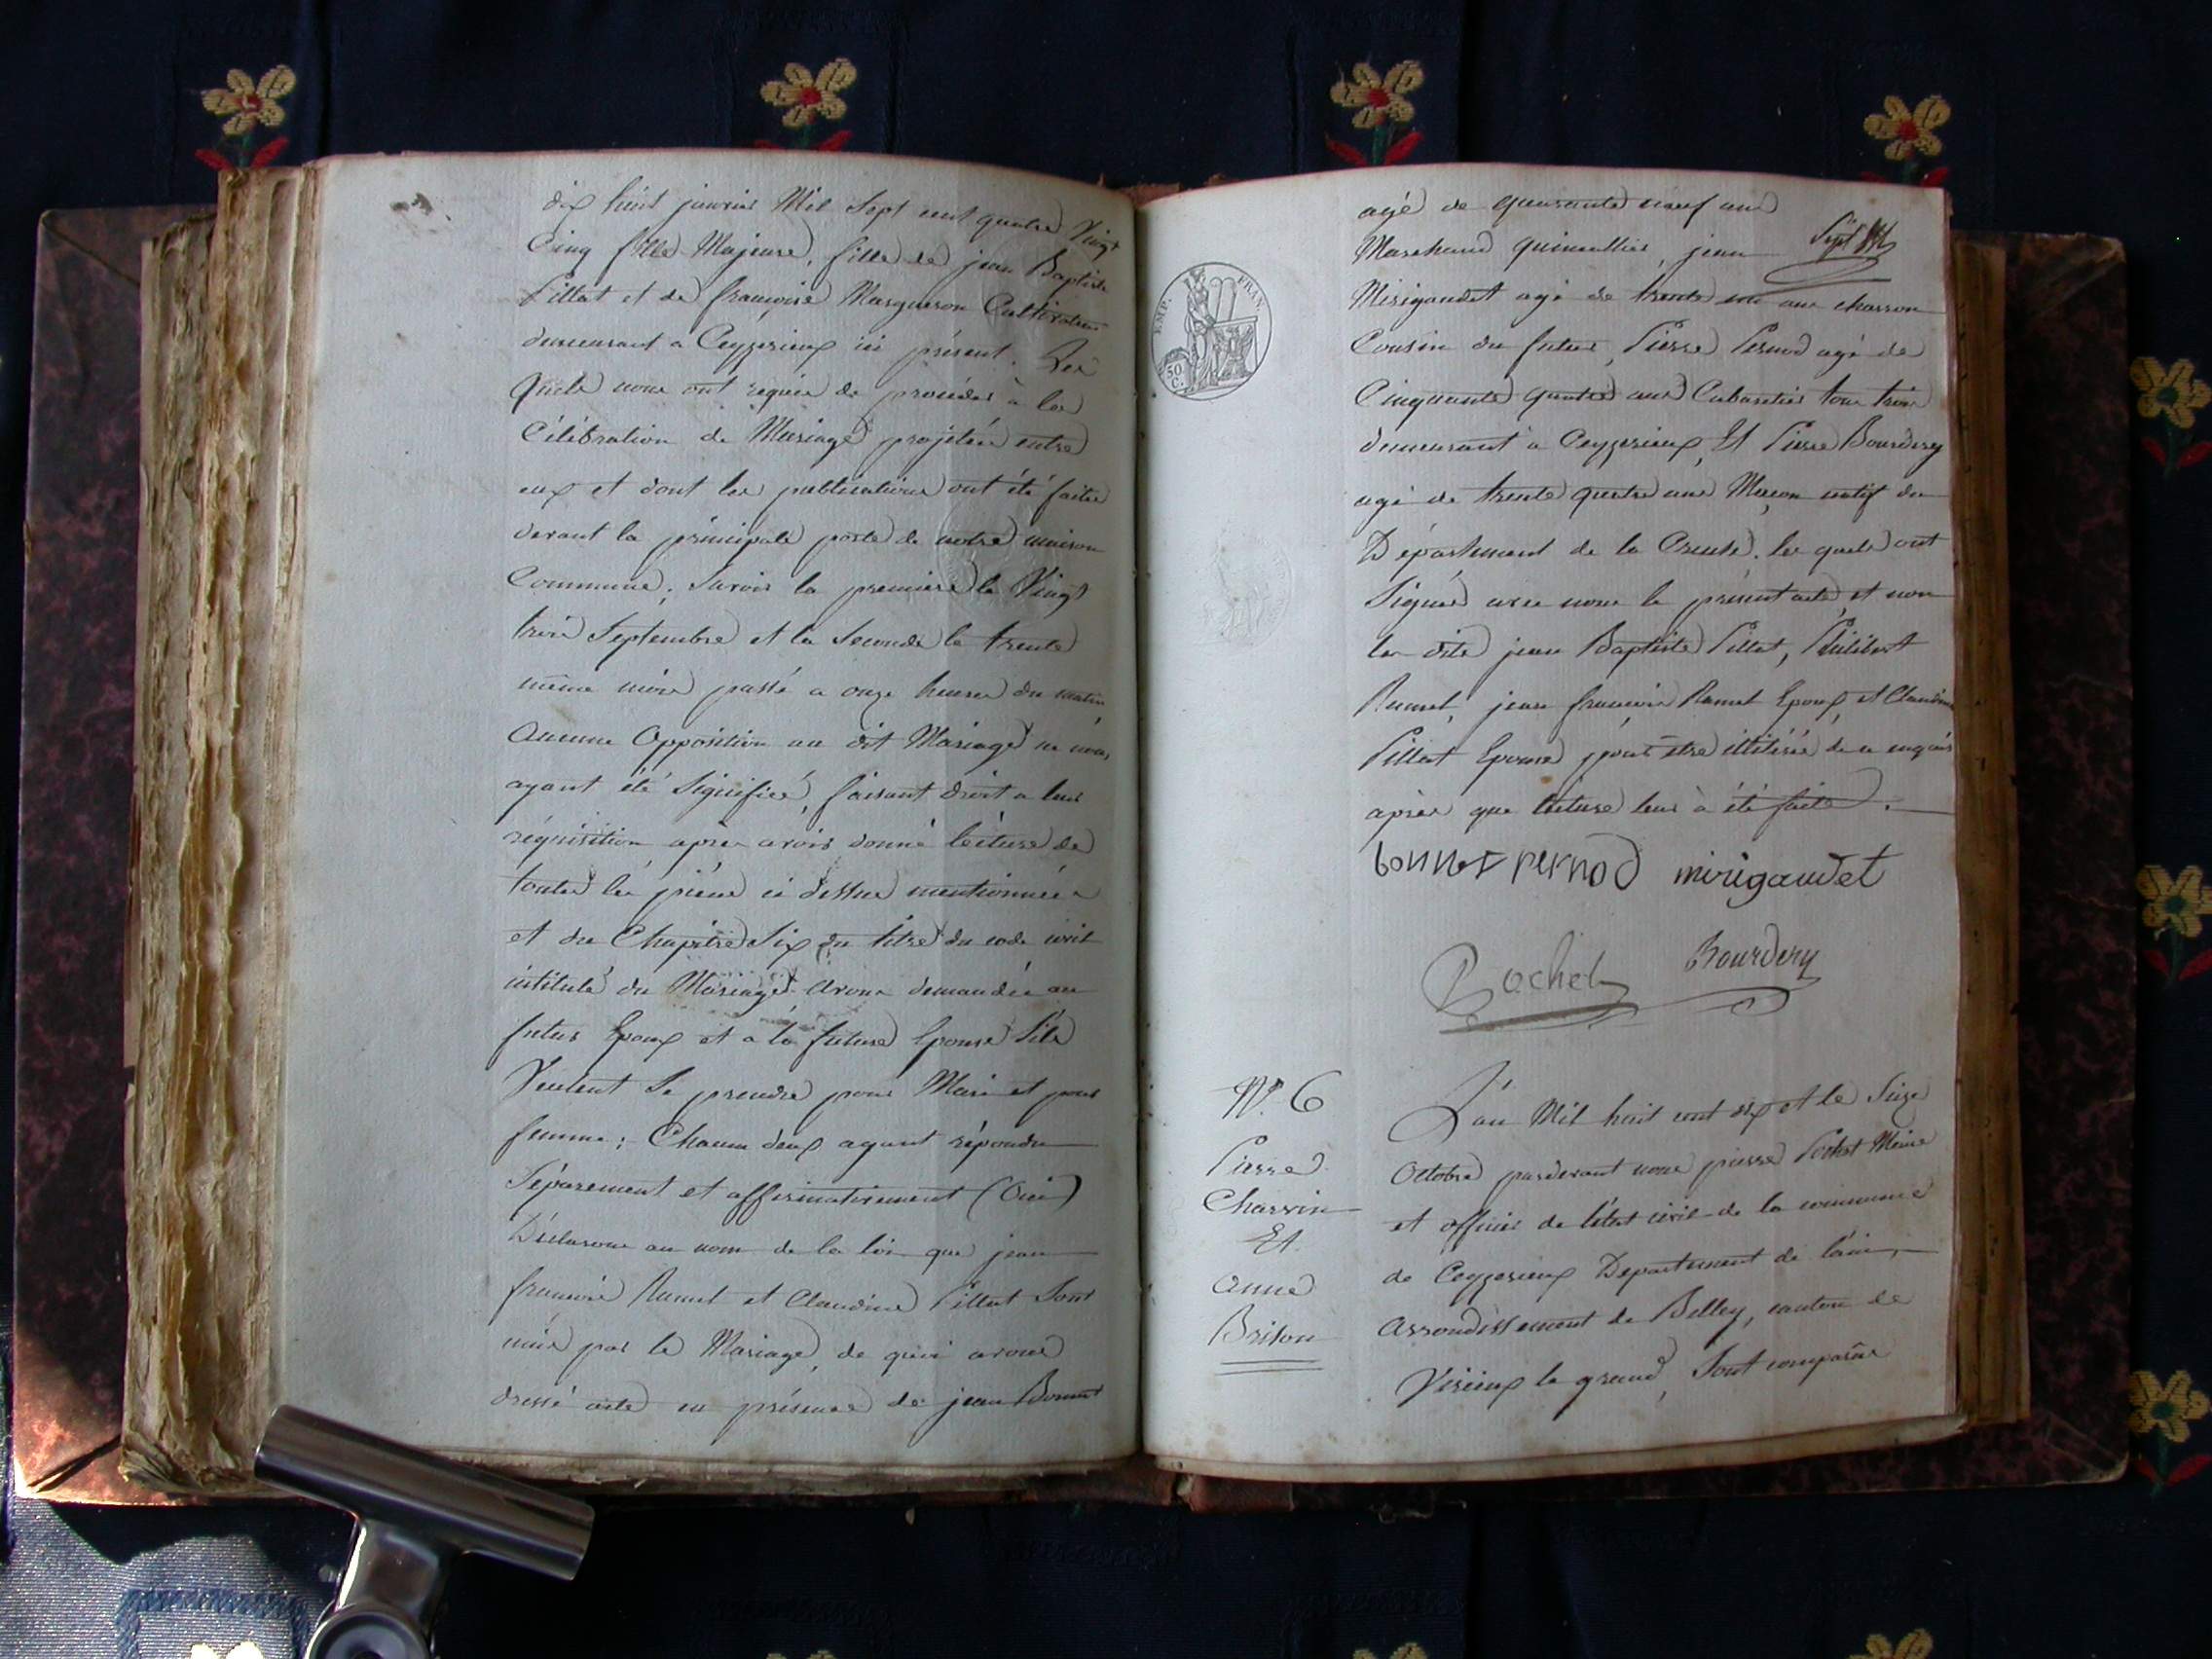 dix huit janvier Mil Sept cent quatre Vingt
Cinq fille Majeure, fille de jean Baptiste
Pillat et de françoise Marqueron Cultivateur
demeurant a Ceyzerieux ici présent. Les
quels nous ont requis de procéder à la
Célébration de Mariage projetée entre
eux et dont les publications ont été faites
devant la principale porte de notre maison
Commune; Savoir la première le Vingt
trois Septembre et la Seconde le trente
même mois passé a onze heures du matin
Aucune Opposition au dit Mariage ne nous
ayant été Signifiée, faisant droit a leur
réquisition après avoir donné lecture de
toutes les pièces ci dessus mentionnées
et du Chapitre Six du titre du code civil
intitulé du Mariage avons demandée au
futur Epoux et a la future Epouse S'ils
Veulent Se prendre pour Mari et pour
femme; Chacun deux ayant répondu
Séparement et affirmativement (Oui)
Déclarons au nom de la loi que jean
françois Ramel et Claudine Pillat Sont
unis par le Mariage, de quoi avons
dressé acte en présence de jean Bonnet
agé de quarante neuf ans
Marchand quincallier, jean
EMP. FRAN.
50 C.
Mirigaudet agé de trente un ans charron
Cousin du futur, Pierre Pernod agé de
Cinquante quatre ans Cabaretier tous trois
demeurant a Ceyzerieux, Et Pierre Bourdery
agé de trente quatre ans Maçon natif du
Département de la Creuse. les quels ont
Signés avec nous le présent acte, et non
les dits jean Baptiste Pillat, Philibert
Ramel, jean françois Ramel Epoux, et Claudine
Pillat Epouse pour être illitérés de ce enquis
après que lecture leur à été faite.
bonnet pernod mirigaudet
Rochet Bourdery
N.° 6
Pierre
Charvin
Et
Anne
Briton
L'an Mil huit cent dix et le Seize
Octobre pardevant nous pierre Rochet Maire
et officier de l'état civil de la commune
de Ceyzerieux Département de l'ain,
Arrondissement de Belley, canton de
Virieux le grand, Sont comparus